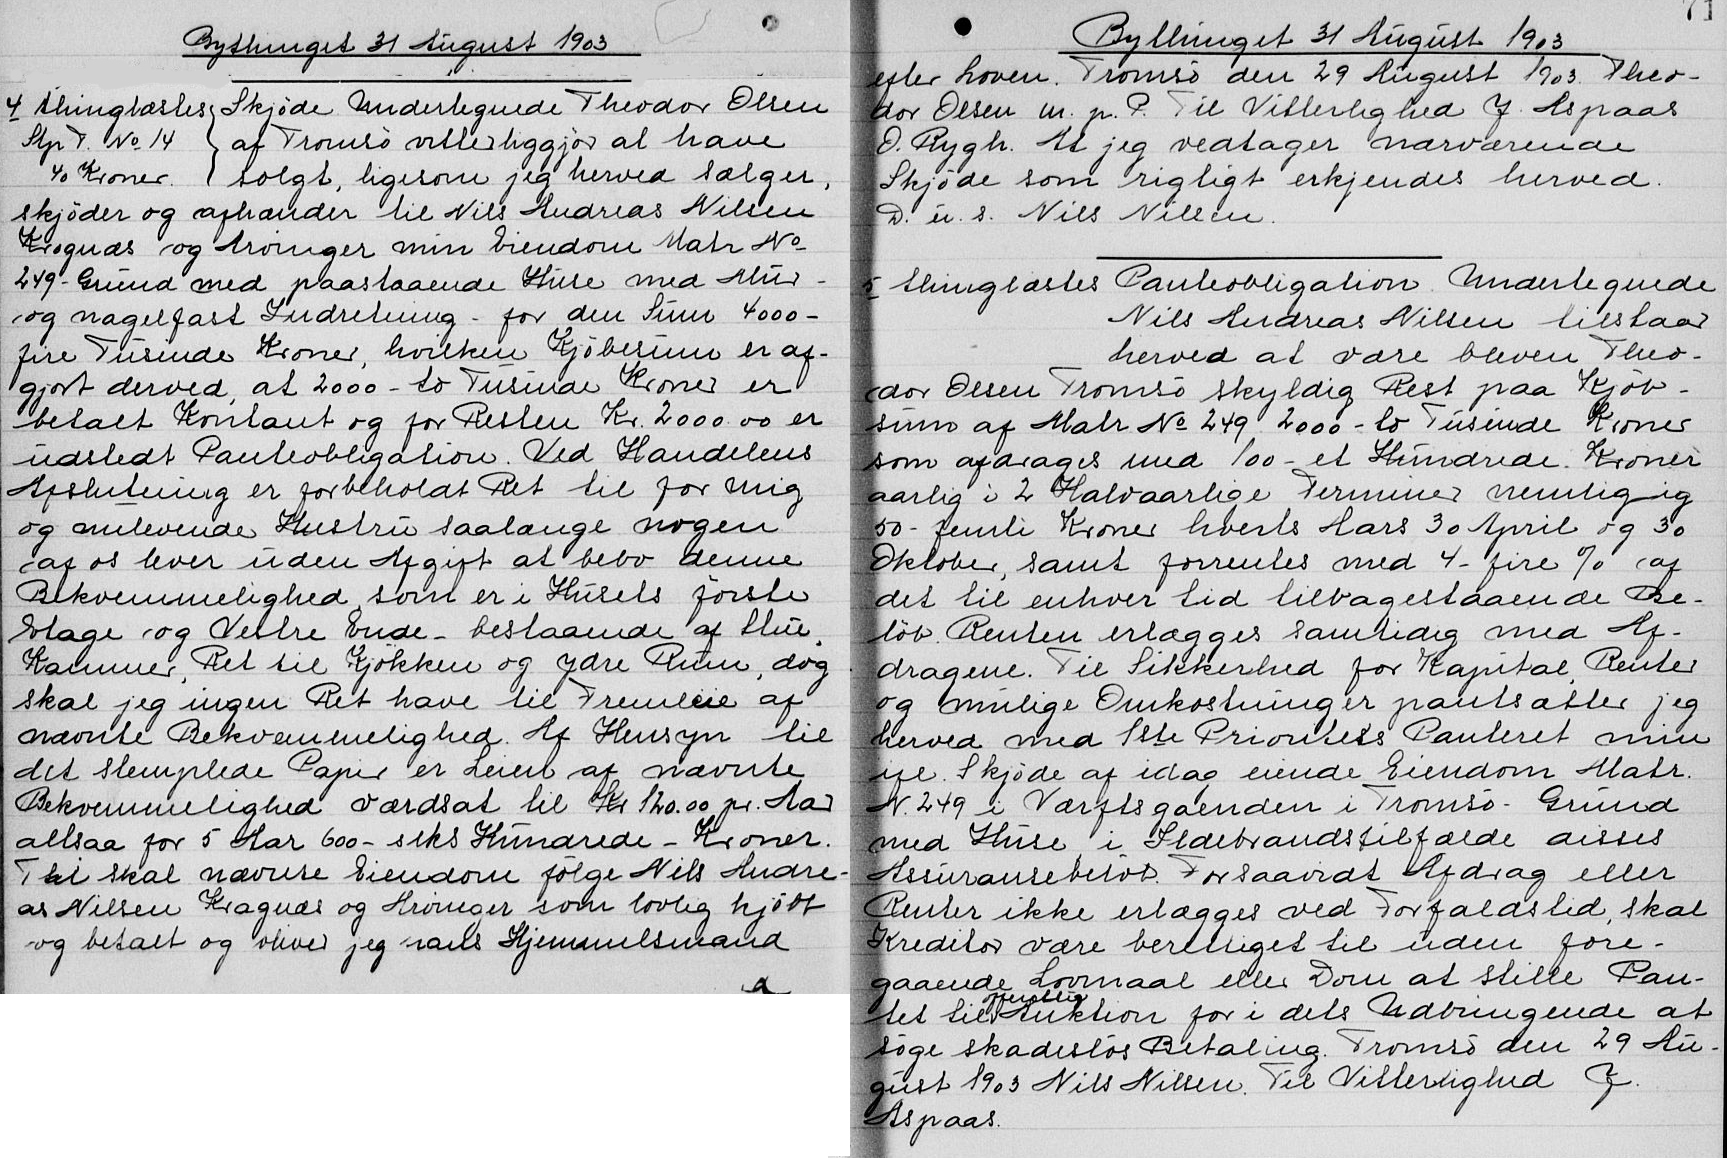 Bythinget 31 August 1903
4 thinglæstes Skjøde Undertegnede Theodor Olsen
Stp T. No 14 af Tromsö vitterliggjør at have
40 Kroner. solgt, ligesom jeg herved sælger,
skjøder og afhænder til Nils Andreas Nilsen
Kragnæs og Arvinger min Eiendom Matr No
249 - Grund med paastaaende Huse med Mur -
og nagelfast Indretning - for den Sum 4000 -
fire Tusinde Kroner, hvilken Kjøbesum er af-
gjort derved, at 2000 - to Tusinde Kroner er
betalt Kontant og for Resten Kr. 2000.00 er
udstedt Panteobligation. Ved Handelens
Afslutning er forbeholdt Ret til for mig
og nulevende Hustru saalænge nogen
af os lever uden Afgift at bebo denne
Bekvemmelighed, som er i Husets første
Etage og Vestre Ende - bestaaende af Stue,
Kammer, Ret til Kjøkken og ydre Rum, dog
skal jeg ingen Ret have til Fremleie af
nævnte Bekvemmelighed. Af Hensyn til
det stemplede Papir er Leien af nævnte
Bekvemmelighed værdsat til Kr 120.00 pr. Aar
altsaa for 5 Aar 600 - seks Hundrede - Kroner.
Thi skal nævnte Eiendom følge Nils Andre-
as Nilsen Kragnæs og Arvinger som lovlig kjøbt
og betalt og bliver jeg hans Hjemmelsmand
71
Bythinget 31 August 1903
efter Loven. Tromsö den 29 August 1903. Theo-
dor Olsen m. p. P. Til Vitterlighed J. Aspaas
O. Rygh. At jeg vedtager nærværende
Skjøde som rigtigt erkjendes herved.
D. u. s. Nils Nilsen.
5 thinglæstes Panteobligation Undertegnede
Nils Andreas Nilsen tilstaar
herved at være bleven Theo-
dor Olsen Tromsö skyldig Rest paa Kjøb-
sum af Matr No 249 2000 - to Tusinde Kroner
som afdrages med 100 - et Hundrede. Kroner
aarlig i 2 Halvaarlige Terminer nemlig
50 - femti Kroner hverts Aars 30 April og 30
Oktober, samt forrentes med 4 - fire % af
det til enhver tid tilbagestaaende Be-
løb. Renten erlægges samtidig med Af-
dragene. Til Sikkerhed for Kapital, Renter
og mulige Omkostninger pantsætter jeg
herved med 1ste Prioritets Panteret min
ifl. Skjøde af idag eiende Eiendom Matr.
N. 249 i Værftsgaenden i Tromsö - Grund
med Huse i Ildebrandstilfælde disses
Assuransebeløb. Forsaavidt Afdrag eller
Renter ikke erlægges ved Forfaldstid, skal
Kreditor være berettiget til uden fore-
gaaende Lovmaal eller Dom at stille Pan-
tet til offentlig Auktion for i dets Udbringende at
søge skadesløs Betaling. Tromsö den 29 Au-
gust 1903 Nils Nilsen. Til Vitterlighed J.
Aspaas.